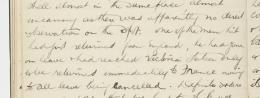 shell almost in the same place almost
uncanny as there was apparently no direct
observation on the spot. One of the men hit
had just returned from England, he had gone
on leave & had reached Victoria Station only
to be returned immediately to France owing
to all leave being cancelled.